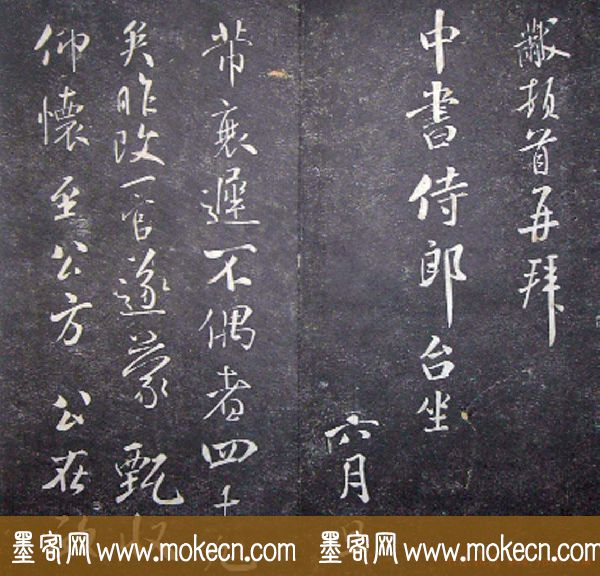 黻頓首再拜
中書侍郎台坐
六月
带衰遲不偶者四十
矣昨改一官遂蒙 甄
仰懷至公方 公在
墨客网 www.mokecn.com 墨客网 www.mokecn.com